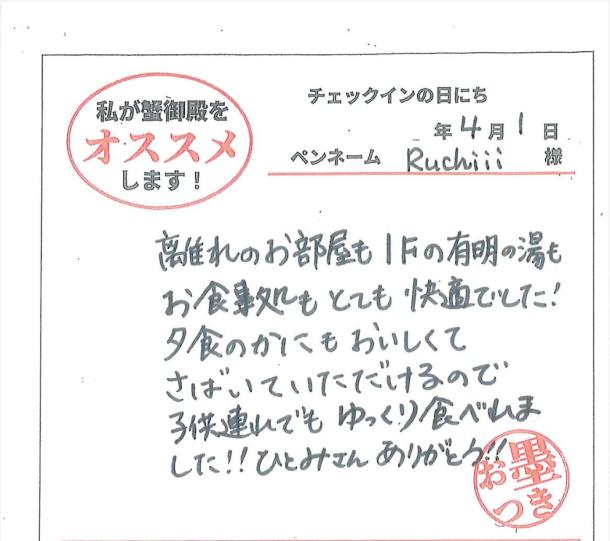 私が蟹御殿を
オススメ
します！
チェックインの日にち
年 4 月 1 日
ペンネーム Ruchiii 様
離れのお部屋も 1Fの有明の湯も
お食事処も とても 快適でした!
夕食のかにも おいしくて
さばいていただけるので
子供連れでも ゆっくり食べれま
した!! ひとみさん ありがとう!!
お墨つき